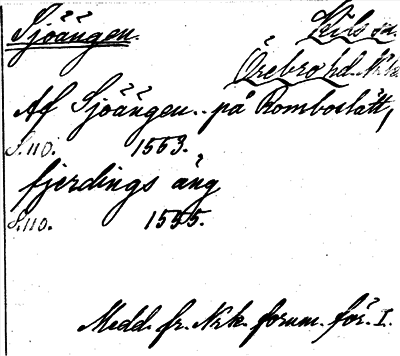 Sjöängen. Lills sn.
Örebro hd. Nke.
Af Sjöängen på Romboslätt,
S. 110. 1563.
fjerdings äng
S. 110. 1555.
Medd. fr. Nrk. fornm. för. I.